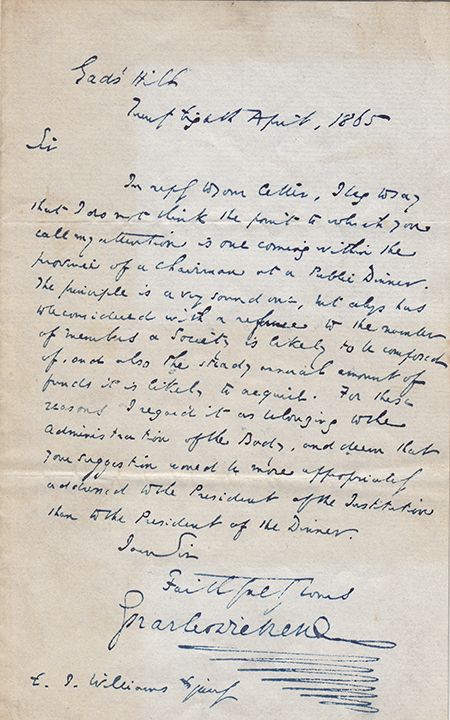 Gad's Hill
Twenty Eighth April, 1865
Sir
In reply to your letter, I beg to say
that I do not think the point to which you
call my attention is one coming within the
province of a Chairman at a Public Dinner.
The principle is a very sound one, but always has
to be considered with a reference to the number
of members a Society is likely to be composed
of, and also the steady annual amount of
funds it is likely to acquire. For these
reasons I regard it as belonging to the
Administration of the Body, and deem that
your suggestion would be more appropriately
addressed to the President of the Institution
than to the President of the Dinner.
Your Sir
Faithfully Yours
Charles Dickens
E. J. Williams Esquire